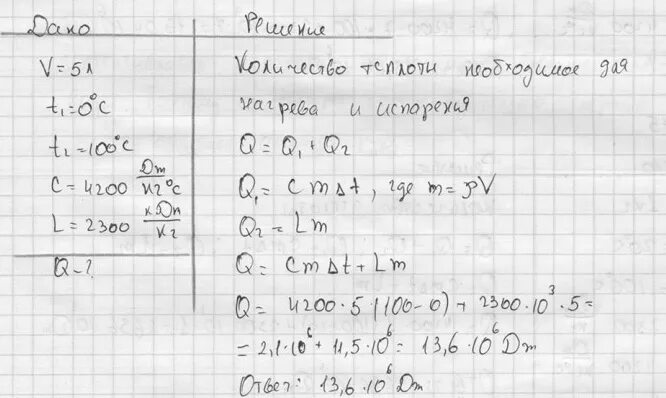 Дано
V = 5 л
t₁ = 0°C
t₂ = 100°C
C = 4200 Дж/кг°C
L = 2300 кДж/кг
Q - ?
Решение
Количество теплоты необходимое для
нагрева и испарения
Q = Q₁ + Q₂
Q₁ = C m Δt, где m = ρV
Q₂ = L m
Q = C m Δt + L m
Q = 4200 · 5 · (100 - 0) + 2300 · 10³ · 5 =
= 2,1 · 10⁶ + 11,5 · 10⁶ = 13,6 · 10⁶ Дж
Ответ: 13,6 · 10⁶ Дж